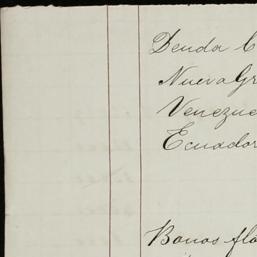 Deuda C
Nueva Gr
Venezue
Ecuador
Bonos flo